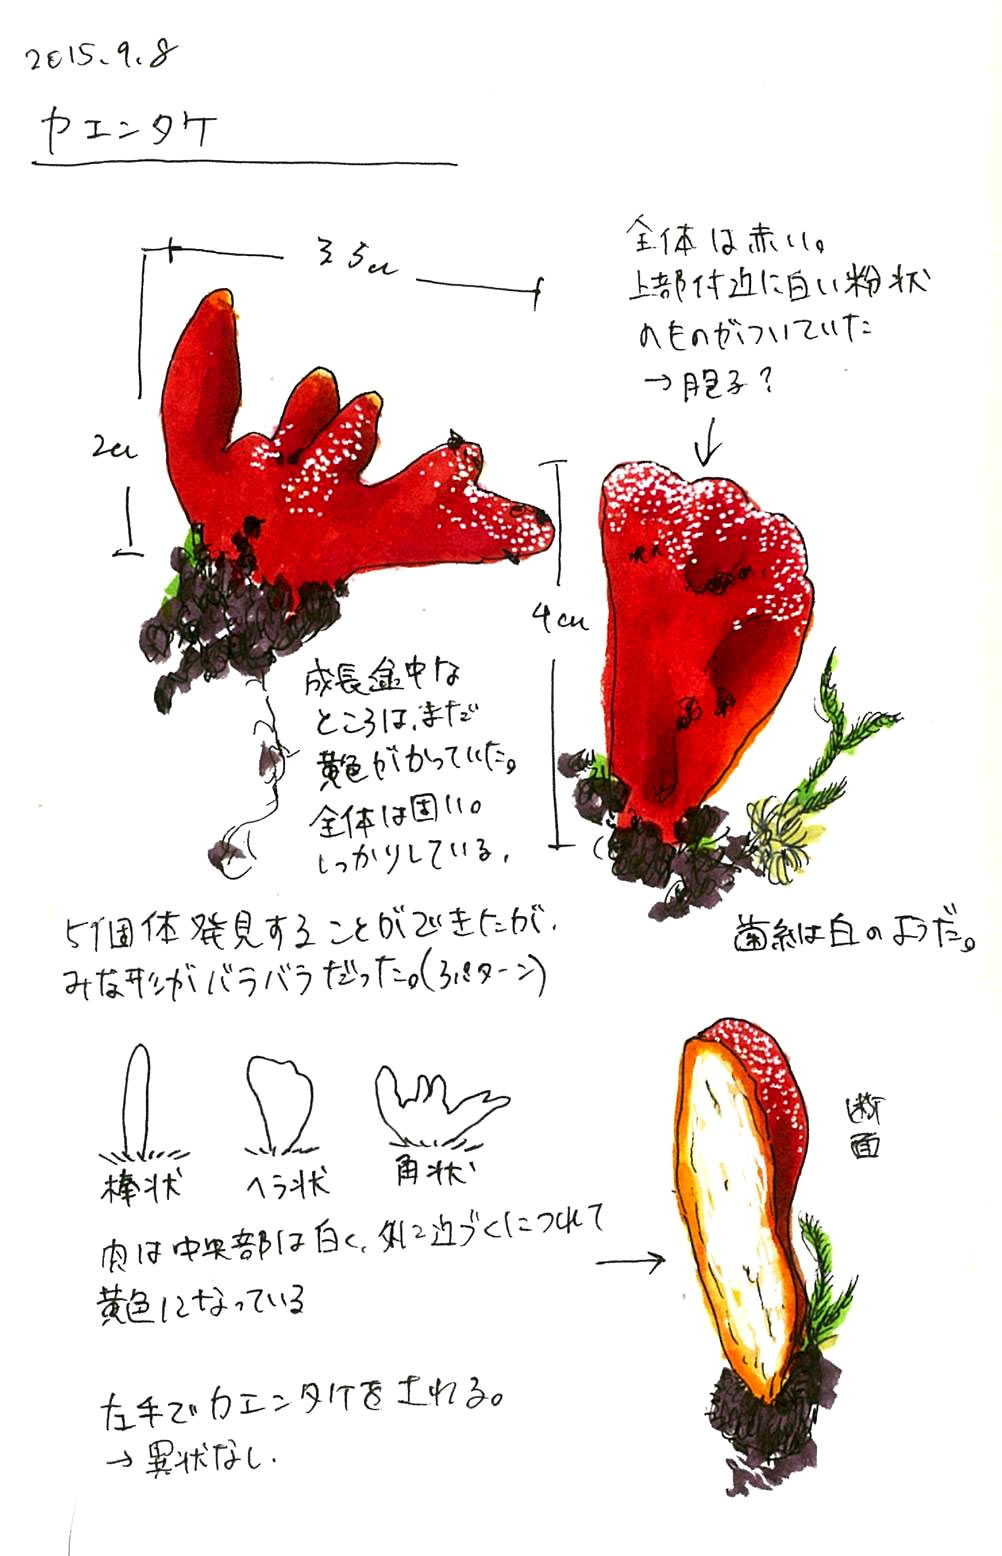 2015.9.8
カエンタケ
3.5cm
全体は赤い。
上部付近に白い粉状
のものがついていた
→胞子?
↓
2cm
4cm
成長途中な
ところは、まだ
黄色がかっていた。
全体は固い。
しっかりしている。
5個体発見することができたが、
みな形がバラバラだった。(3パターン)
菌糸は白のようだ。
棒状
ヘラ状
角状
断面
肉は中央部は白く、外に近づくにつれて
黄色になっている
→
左手でカエンタケをさわる。
→異状なし.